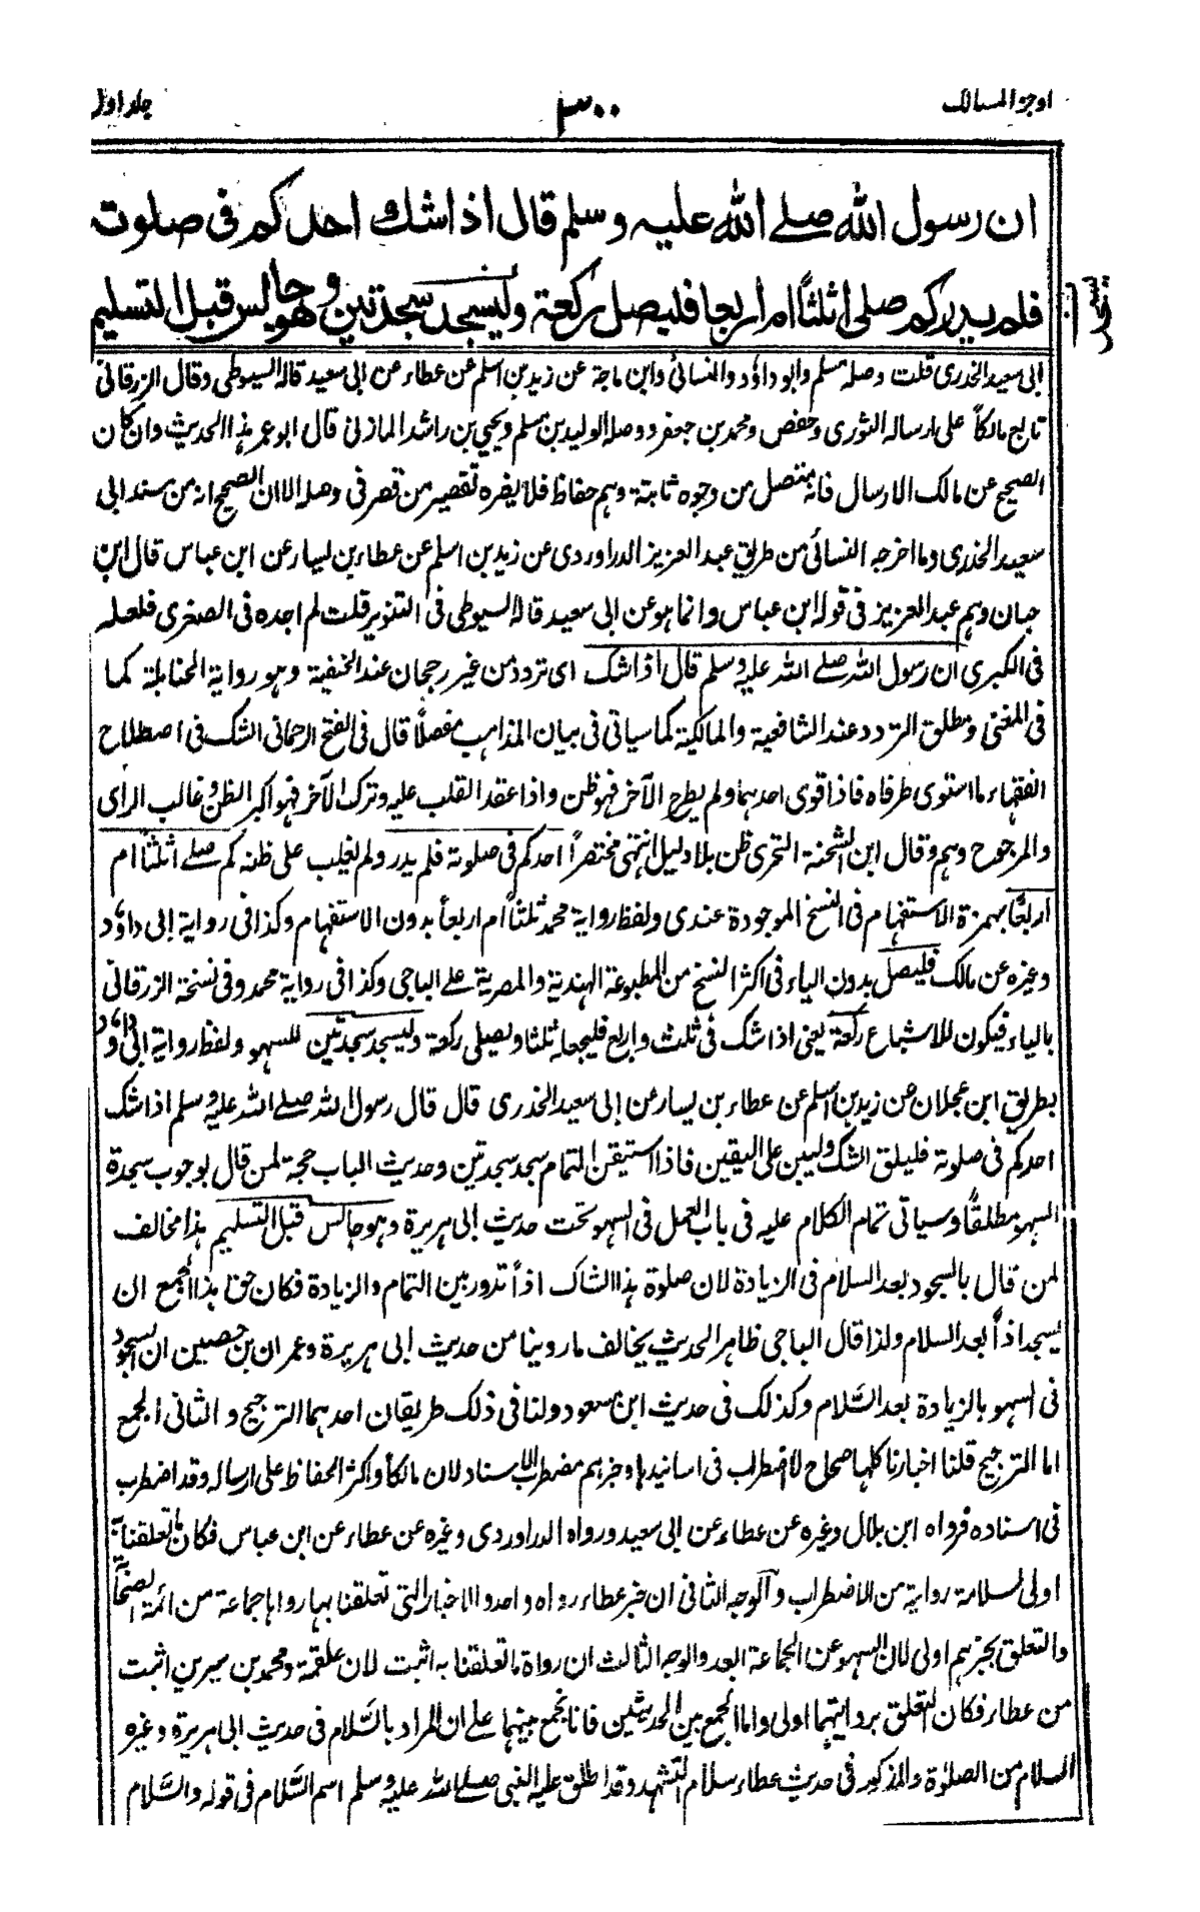 اوجز المسالك
٣٠٠
جلد اول
ان رسول الله صلے الله عليه وسلم قال اذا شك احدكم فى صلوته
فلم يدر كم صلى اثلثًا ام اربعا فليصل ركعة وليسجد سجدتين وهو جالس قبل التسليم
ابى سعيد الخدرى قلت وصله مسلم وابو داؤد والنسائى وابن ماجة عن زيد بن اسلم عن عطاء عن ابى سعيد قاله السيوطى وقال الزرقانى
تابع مالكاً على ارساله الثورى وحفص ومحمد بن جعفر ووصله الوليد بن مسلم ويحيى بن راشد المازنى قال ابو عمر هذا الحديث وان كان
الصحيح عن مالك الارسال فانه متصل من وجوه ثابتة وهم حفاظ فلا يضره تقصير من قصر فى وصله الا ان الصحيح انه من سند ابى
سعيد الخدرى وما اخرجه النسائى من طريق عبد العزيز الدراوردى عن زيد بن اسلم عن عطاء بن يسار عن ابن عباس قال ابن
حبان وهم عبد العزيز فى قوله ابن عباس وانما هو عن ابى سعيد قاله السيوطى فى التنوير قلت لم اجده فى الصغرى فلعله
فى الكبرى ان رسول الله صلے الله عليه وسلم قال اذا شك اى تردد من غير رجحان عند الحنفية وهو رواية الحنابلة كما
فى المغنى ومطلق التردد عند الشافعية والمالكية كما سياتى فى بيان المذاهب مفصلاً قال فى الفتح الرحمانى الشك فى اصطلاح
الفقهاء ما استوى طرفاه فاذا قوى احدهما ولم يطرح الآخر فهو ظن واذا عقد القلب عليه وترك الآخر فهو اكبر الظن وغالب الراى
والمرجوح وهم وقال ابن الشحنة التحرى ظن بلا دليل انتهى مختصراً احدكم فى صلوته فلم يدر ولم يغلب على ظنه كم صلے اثلثاً ام
اربعًا بهمزة الاستفهام فى النسخ الموجودة عندى ولفظ رواية محمد ثلثاً ام اربعاً بدون الاستفهام وكذا فى رواية ابى داؤد
وغيره عن مالك فليصل بدون الياء فى اكثر النسخ من المطبوعة الهندية والمصرية علے الباجى وكذا فى رواية محمد وفى نسخة الزرقانى
بالياء فيكون للاشباع ركعة يعنى اذا شك فى ثلث واربع فليجعله ثلثا ويصلى ركعة وليسجد سجدتين للسهو ولفظ رواية ابى داؤد
بطريق ابن عجلان عن زيد بن اسلم عن عطاء بن يسار عن ابى سعيد الخدرى قال قال رسول الله صلے الله عليه وسلم اذا شك
احدكم فى صلوته فليلق الشك وليبن على اليقين فاذا استيقن التمام سجد سجدتين وحديث الباب حجة لمن قال بوجوب سجدة
السهو مطلقاً وسياتى تمام الكلام عليه فى باب العمل فى السهو تحت حديث ابى هريرة وهو جالس قبل التسليم هذا مخالف
لمن قال بالسجود بعد السلام فى الزيادة لان صلوة هذا الشاك اذاً تدور بين التمام والزيادة فكان حق هذا الجمع ان
يسجد اذاً بعد السلام ولذا قال الباجى ظاهر الحديث يخالف ما روينا من حديث ابى هريرة وعمران بن حصين ان السجود
فى السهو بالزيادة بعد السَّلام وكذلك فى حديث ابن مسعود ولنا فى ذلك طريقان احدهما الترجيح والثانى الجمع
اما الترجيح قلنا اخبارنا كلها صحاح لا اضطراب فى اسانيدها وخبرهم مضطرب الاسناد لان مالكاً واكثر الحفاظ على ارساله وقد اضطرب
فى اسناده فرواه ابن بلال وغيره عن عطاء عن ابى سعيد ورواه الدراوردى وغيره عن عطاء عن ابن عباس فكان ما تعلقنا به
اولى لسلامة روايته من الاضطراب والوجه الثانى ان خبر عطاء رواه واحد والاخبار التى تعلقنا بها رواها جماعة من ائمة الصحابة
والتعلق بخبرهم اولى لان السهو عن الجماعة ابعد والوجه الثالث ان رواة ما تعلقنا به اثبت لان علقمة ومحمد بن سيرين اثبت
من عطاء فكان التعلق بروايتهما اولى واما الجمع بين الحديثين فانا نجمع بينهما علے ان المراد بالسَّلام فى حديث ابى هريرة وغيره
السلام من الصلوة والمذكور فى حديث عطاء سلام التشهد وقد اطلق عليه النبى صلے الله عليه وسلم اسم السَّلام فى قوله والسَّلام